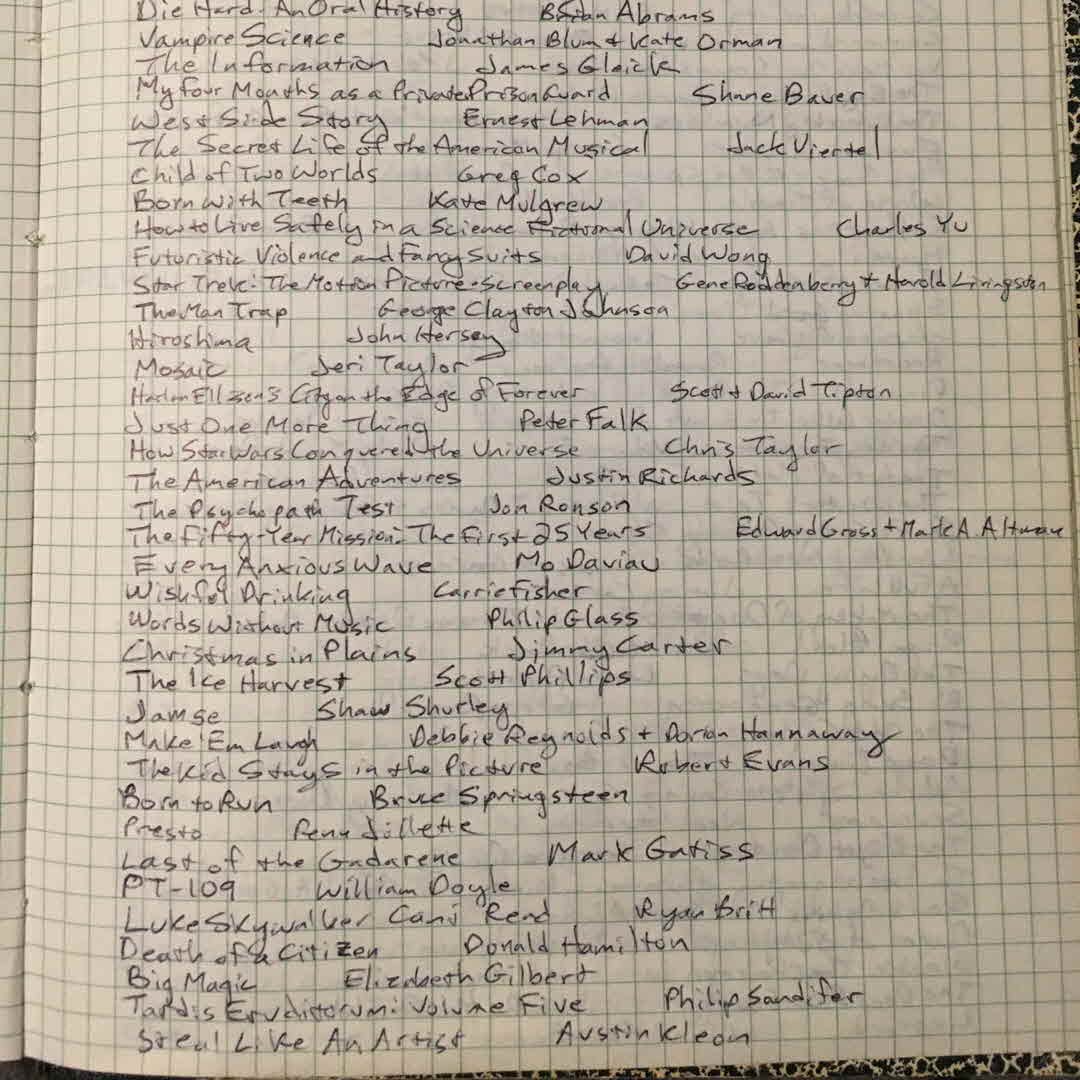 Die Hard: An Oral History Brian Abrams
Vampire Science Jonathan Blum + Kate Orman
The Information James Gleick
My Four Months as a Private Prison Guard Shane Bauer
West Side Story Ernest Lehman
The Secret Life of the American Musical Jack Viertel
Child of Two Worlds Greg Cox
Born With Teeth Kate Mulgrew
How to Live Safely in a Science Fictional Universe Charles Yu
Futuristic Violence and Fancy Suits David Wong
Star Trek: The Motion Picture - Screenplay Gene Roddenberry + Harold Livingston
The Man Trap George Clayton Johnson
Hiroshima John Hersey
Mosaic Jeri Taylor
Harlan Ellison's City on the Edge of Forever Scott + David Tipton
Just One More Thing Peter Falk
How Star Wars Conquered the Universe Chris Taylor
The American Adventures Justin Richards
The Psychopath Test Jon Ronson
The Fifty-Year Mission: The First 25 Years Edward Gross + Mark A. Altman
Every Anxious Wave Mo Daviau
Wishful Drinking Carrie Fisher
Words Without Music Philip Glass
Christmas in Plains Jimmy Carter
The Ice Harvest Scott Phillips
Jamse Shaw Shurley
Make 'Em Laugh Debbie Reynolds + Dorian Hannaway
The Kid Stays in the Picture Robert Evans
Born to Run Bruce Springsteen
Presto Penn Jillette
Last of the Gadarene Mark Gatiss
PT-109 William Doyle
Luke Skywalker Can't Read Ryan Britt
Death of a Citizen Donald Hamilton
Big Magic Elizabeth Gilbert
Tardis Eruditorum: Volume Five Philip Sandifer
Steal Like An Artist Austin Kleon